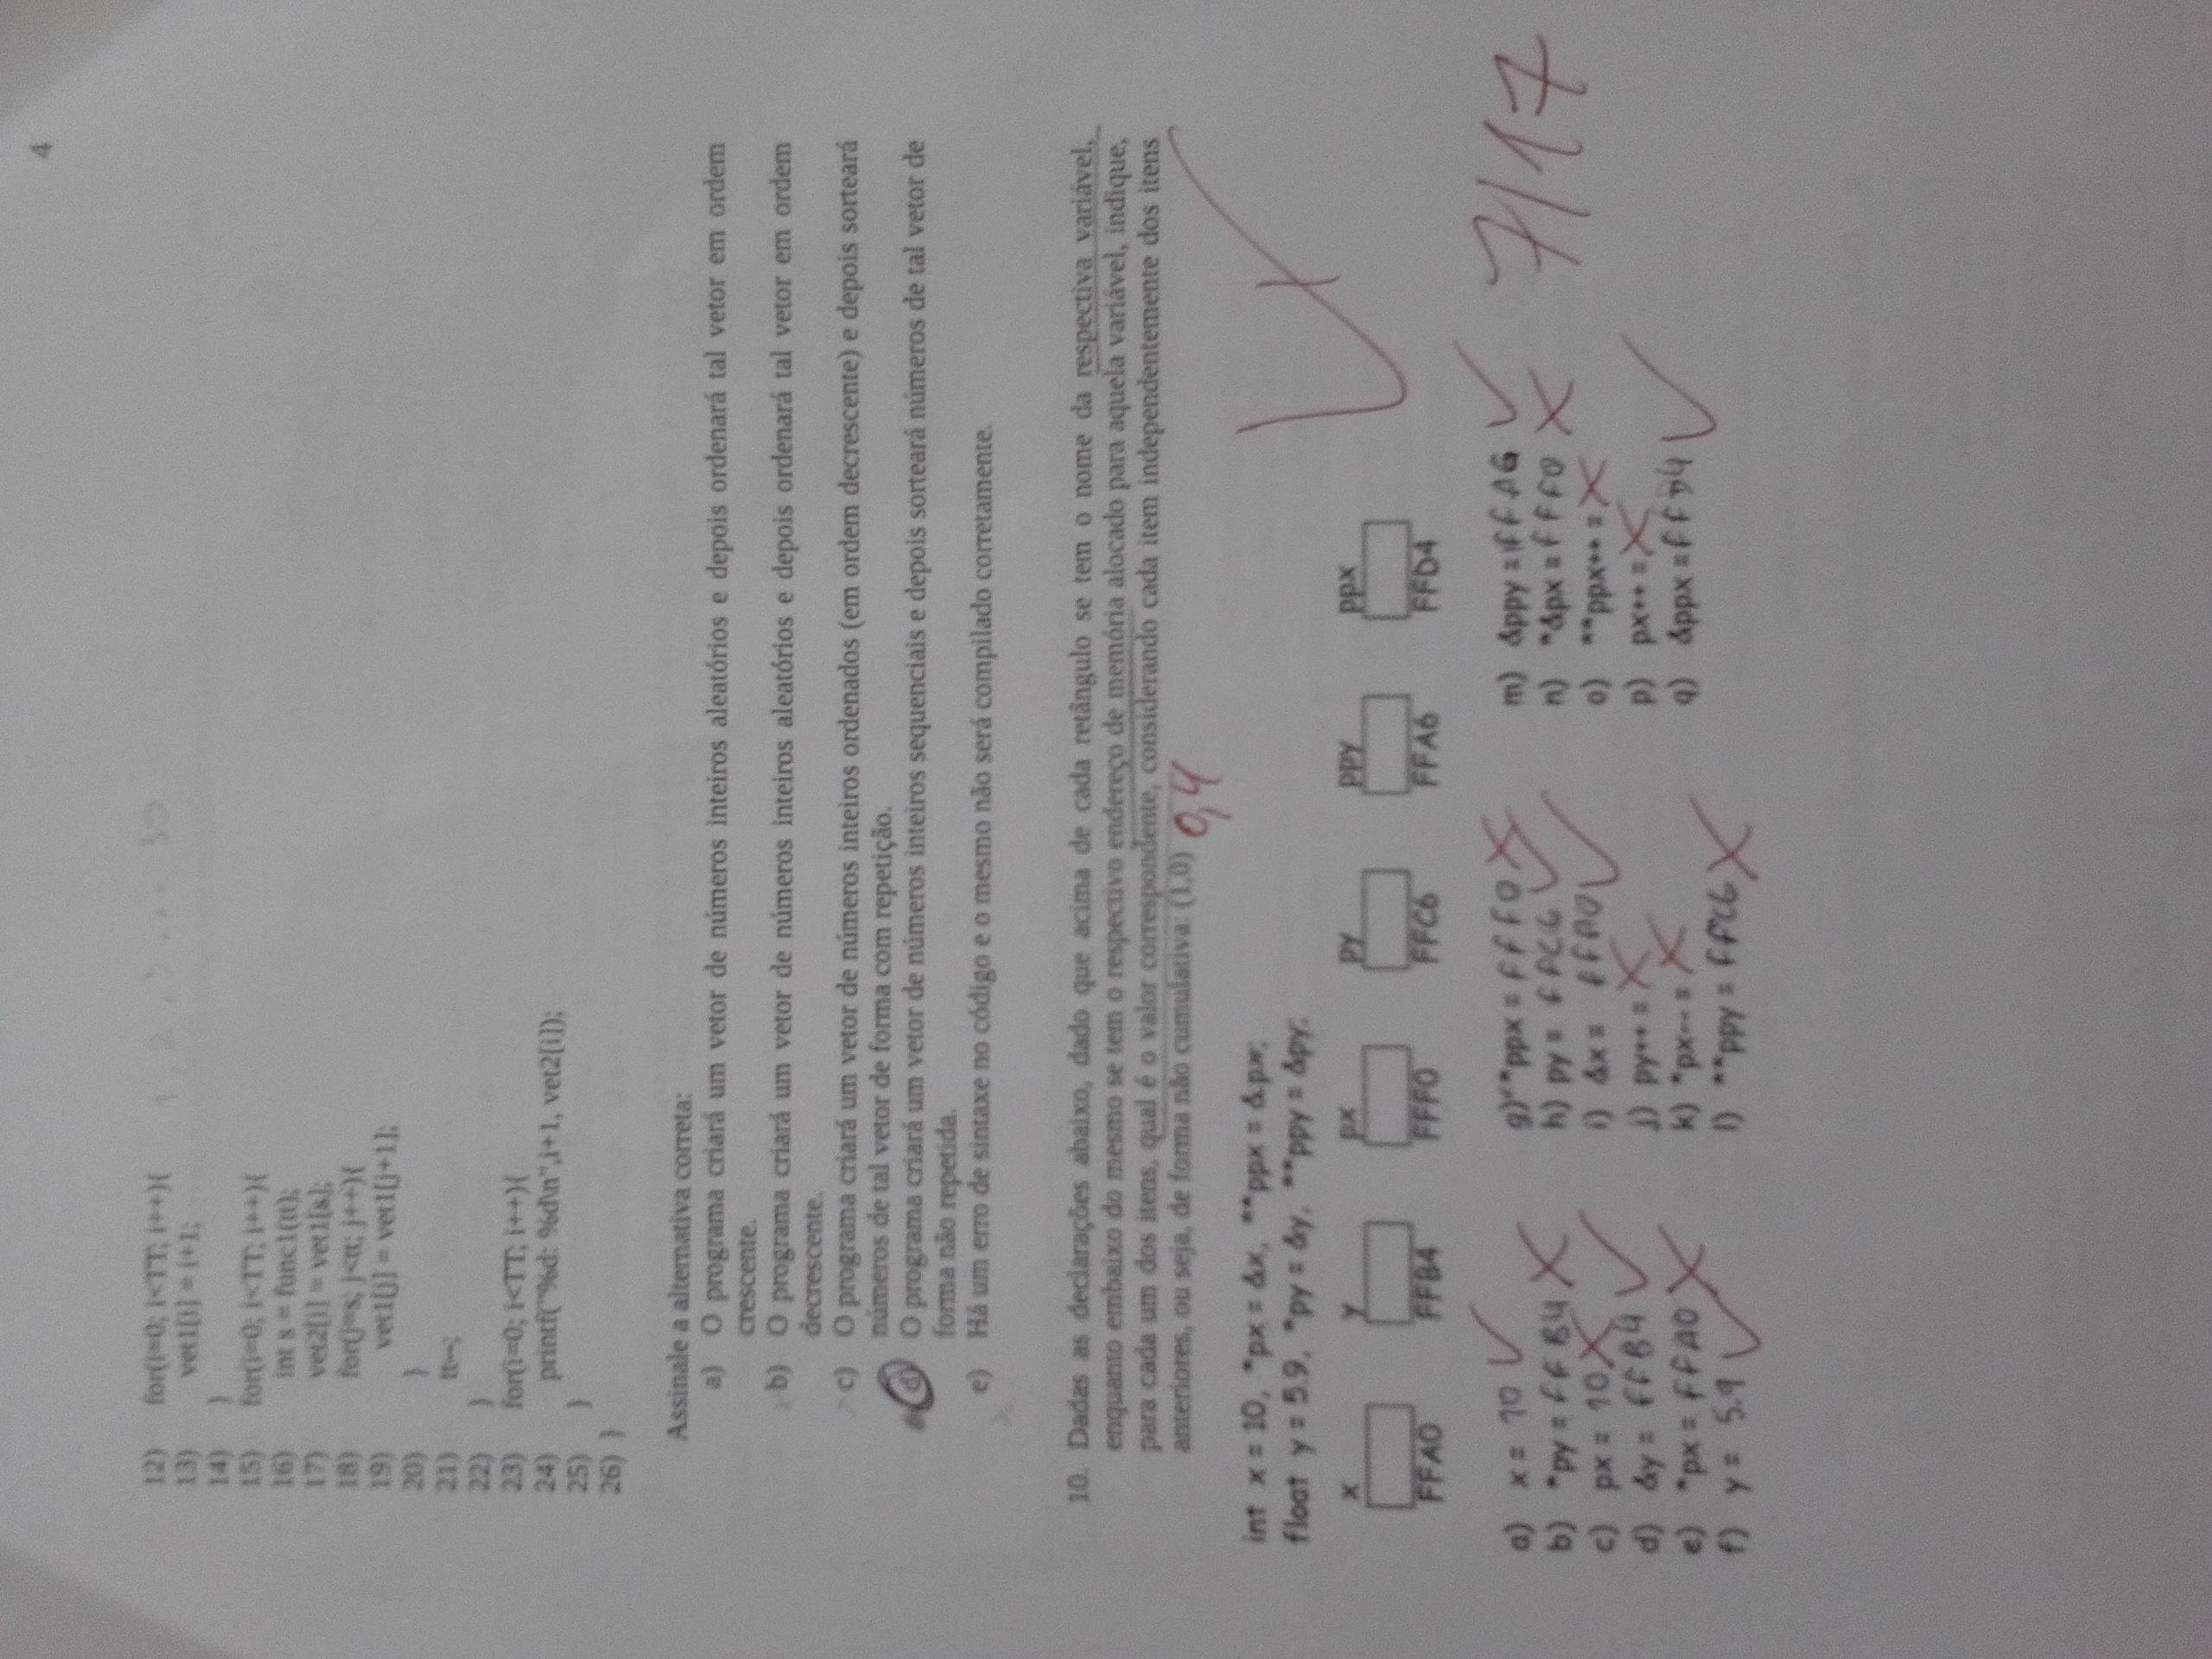 4
12) for(i=0; i<TT; i++){ 1, 2, 3 ... 30
13) vet1[i] = i+1;
14) }
15) for(i=0; i<TT; i++){
16) int s = func1(tt);
17) vet2[i] = vet1[s];
18) for(j=s; j<tt; j++){
19) vet1[j] = vet1[j+1];
20) }
21) tt--;
22) }
23) for(i=0; i<TT; i++){
24) printf("%d: %d\n",i+1, vet2[i]);
25) }
26) }
Assinale a alternativa correta:
a) O programa criará um vetor de números inteiros aleatórios e depois ordenará tal vetor em ordem
crescente.
b) O programa criará um vetor de números inteiros aleatórios e depois ordenará tal vetor em ordem
decrescente.
c) O programa criará um vetor de números inteiros ordenados (em ordem decrescente) e depois sorteará
números de tal vetor de forma com repetição.
d) O programa criará um vetor de números inteiros sequenciais e depois sorteará números de tal vetor de
forma não repetida.
e) Há um erro de sintaxe no código e o mesmo não será compilado corretamente.
10. Dadas as declarações abaixo, dado que acima de cada retângulo se tem o nome da respectiva variável,
enquanto embaixo do mesmo se tem o respectivo endereço de memória alocado para aquela variável, indique,
para cada um dos itens, qual é o valor correspondente, considerando cada item independentemente dos itens
anteriores, ou seja, de forma não cumulativa: (1,0) 0,4
int x = 10, *px = &x, **ppx = &px;
float y = 5.9, *py = &y, **ppy = &py;
x y px py ppy ppx
FFA0 FFB4 FFF0 FFC6 FFA6 FFD4
a) x = 10 g) **ppx = FFF0 m) &ppy = FFA6 7/17
b) *py = FFB4 h) py = FFC6 n) *&px = FFF0
c) px = 10 i) &x = FFA0 o) **ppx++ =
d) &y = FFB4 j) py++ = p) px++ =
e) *px = FFA0 k) *px-- = q) &ppx = FFD4
f) y = 5.9 l) **ppy = FFC6